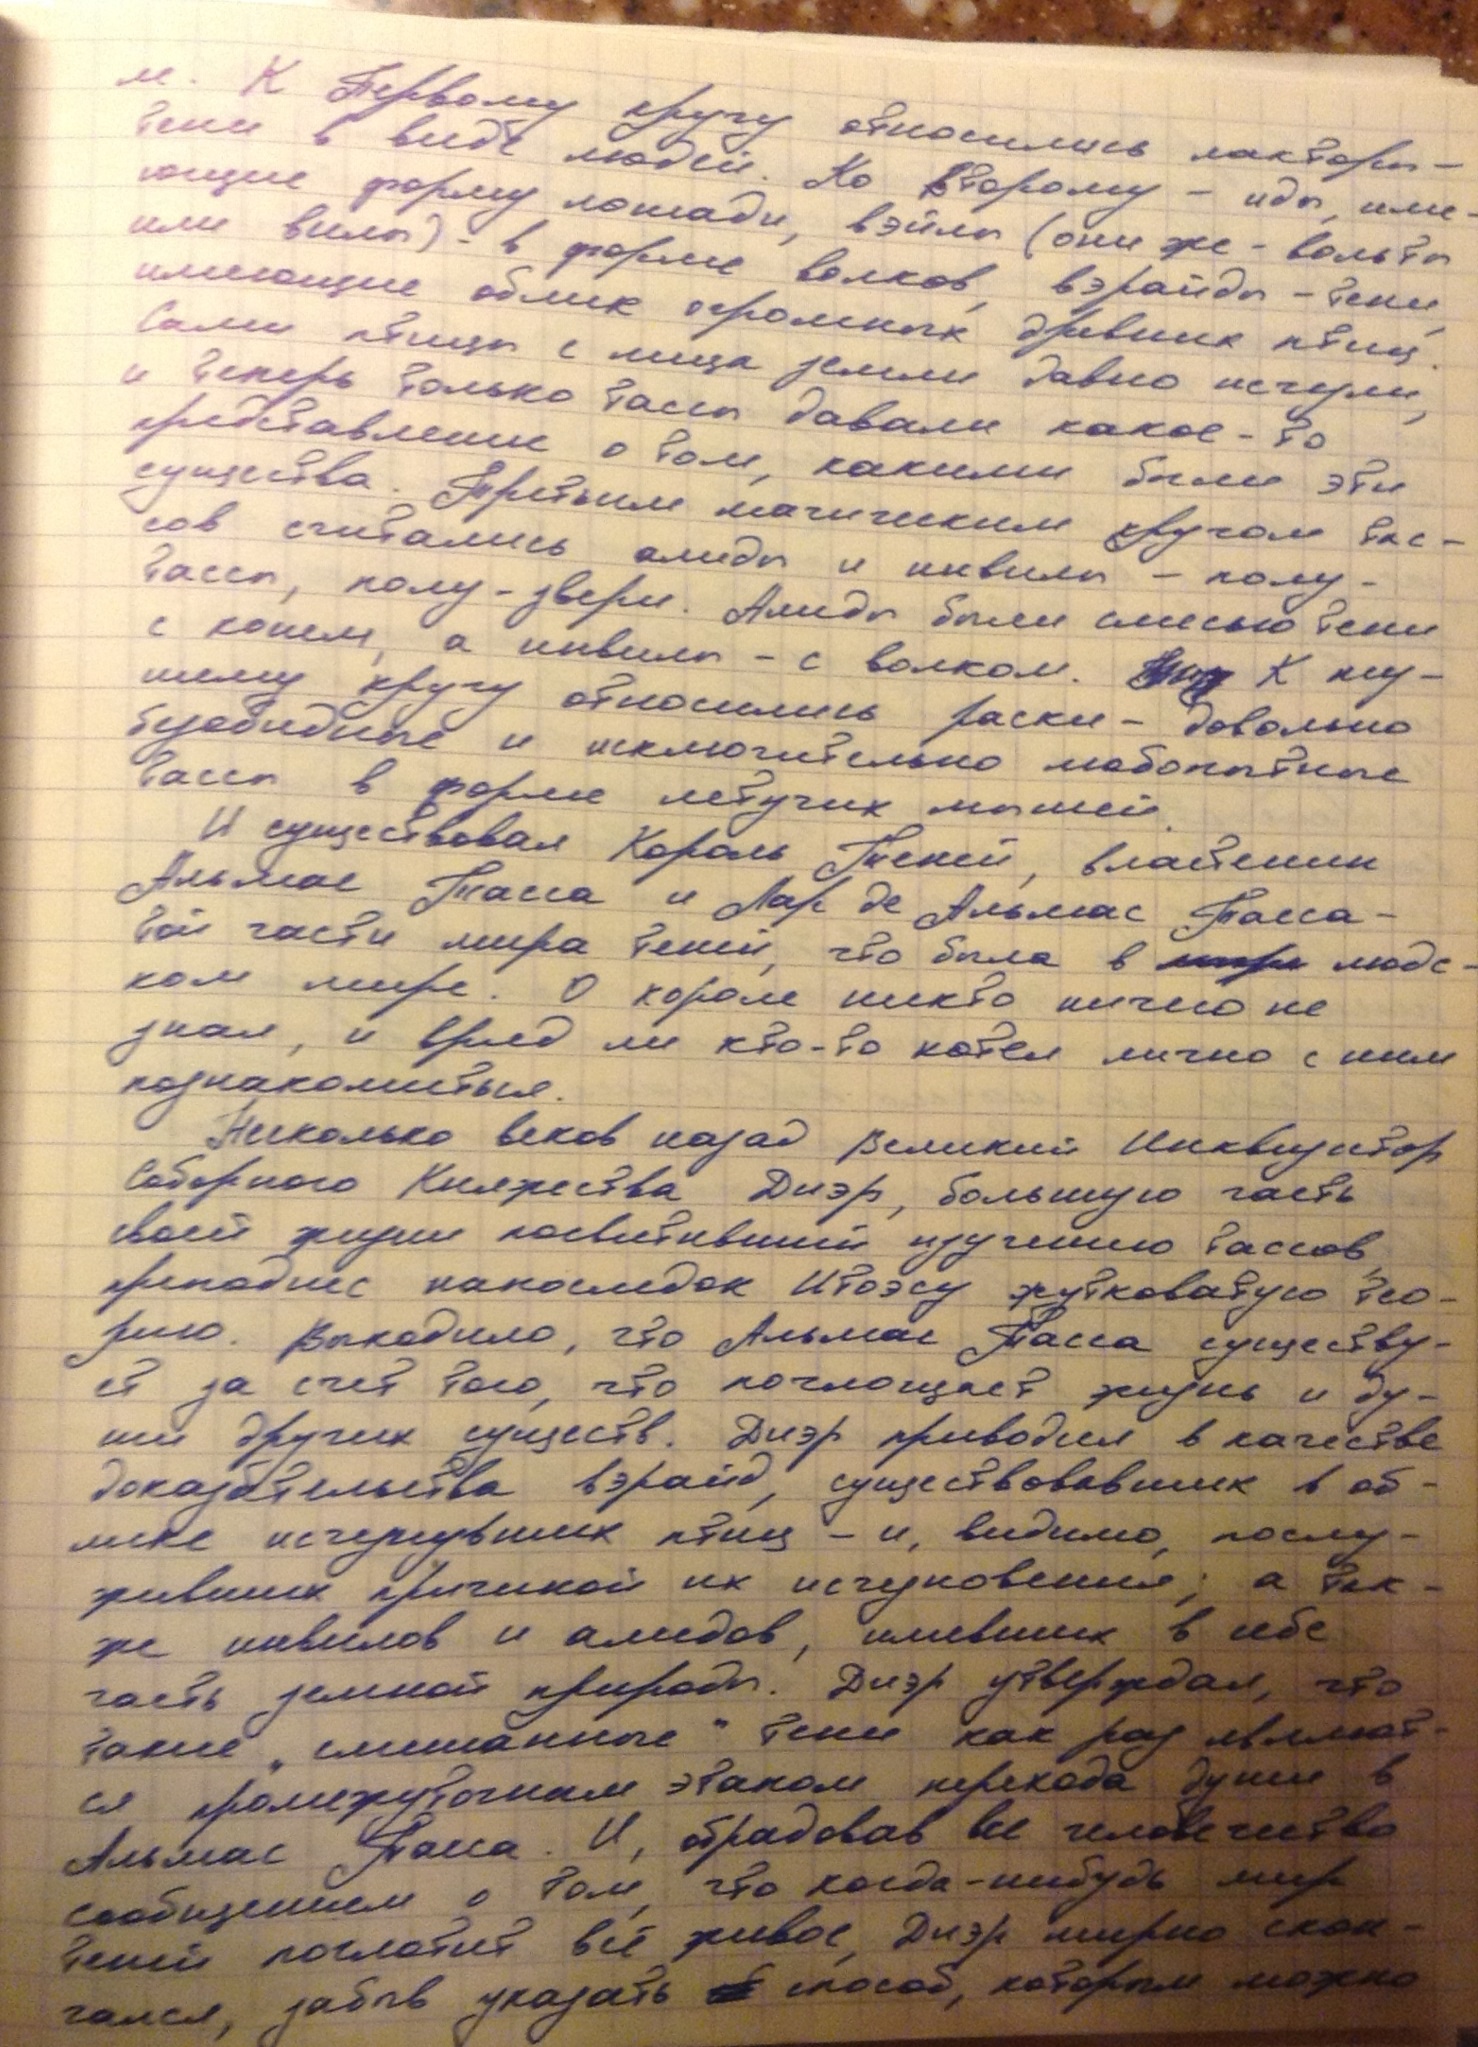 м. К Первому кругу относились лакторы -
тени в виде людей. Ко Второму - иды, име-
ющие форму лошади, вэйлы (они же - вольты
или вилы) - в форме волков, вэрайды - тени,
имеющие облик огромных древних птиц.
Сами птицы с лица земли давно исчезли,
и теперь только тассы давали какое-то
представление о том, какими были эти
существа. Третьим магическим кругом тас-
сов считались алиды и инвилы - полу-
тассы, полу-звери. Алиды были смесью тени
с конем, а инвилы - с волком. К низ-
шему кругу относились раски - довольно
безобидные и исключительно любопытные
тассы в форме летучих мышей.
И существовал Король Теней, властелин
Альмас Тасса и Лар де Альмас Тасса -
той части мира теней, что была в людс-
ком мире. О короле никто ничего не
знал, и вряд ли кто-то хотел лично с ним
познакомиться.
Несколько веков назад Великий Инквизитор
Соборного Княжества Диэр, большую часть
своей жизни посвятивший изучению тассов,
преподнес напоследок Итоэсу жутковатую тео-
рию. Выходило, что Альмас Тасса существу-
ет за счет того, что поглощает жизнь и ду-
ши других существ. Диэр приводил в качестве
доказательства вэрайд, существовавших в об-
лике исчезнувших птиц - и, видимо, послу-
живших причиной их исчезновения; а так-
же инвилов и алидов, имевших в себе
часть земной природы. Диэр утверждал, что
такие „смешанные" тени как раз являют-
ся промежуточным этапом перехода души в
Альмас Тасса. И, обрадовав все человечество
сообщением о том, что когда-нибудь мир
теней поглотит всё живое, Диэр мирно скон-
чался, забыв указать способ, которым можно